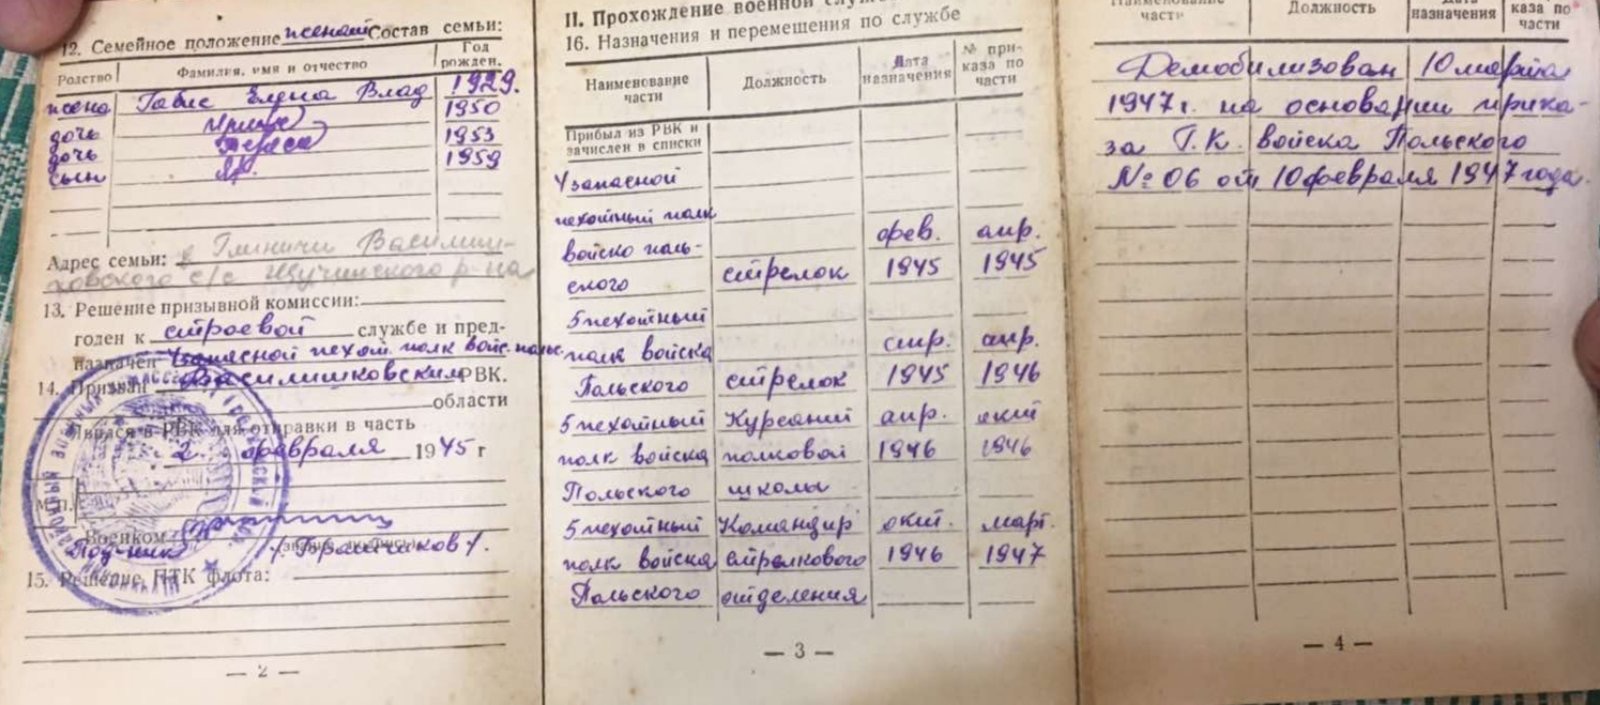 12. Семейное положение женат Состав семьи:
Родство Фамилия, имя и отчество Год рожден.
жена Габис Елена Влад 1929.
дочь 1950
дочь Тереса 1953
сын 1959
Адрес семьи: в Глиничи Василиш-
ковского с/с Щучинского р-на
13. Решение призывной комиссии:
годен к строевой службе и пред-
назначен 4 запасной пехот. полк войс. польс.
14. Призван Василишковским РВК.
области
Явился в РВК для отправки в часть
2. февраля 1945 г
М.П.
Военком
Под-ник
15. Решение ПТК флота:
— 2 —
II. Прохождение военной
16. Назначения и перемещения по службе
Наименование части Должность Дата назначения № при-каза по части
Прибыл из РВК и
зачислен в списки
4 запасной
пехотный полк
войско поль- фев. апр.
ского стрелок 1945 1945
5 пехотный
полк войска апр. апр.
Польского стрелок 1945 1946
5 пехотный Курсант апр. окт
полк войска полковой 1946 1946
Польского школы
5 пехотный Командир окт. март.
полк войска стрелкового 1946 1947
Польского отделения
— 3 —
Наименование части Должность Дата назначения каза по части
Демобилизован 10 марта
1947 г. на основании прика-
за Г.К. войска Польского
№ 06 от 10 февраля 1947 года.
— 4 —